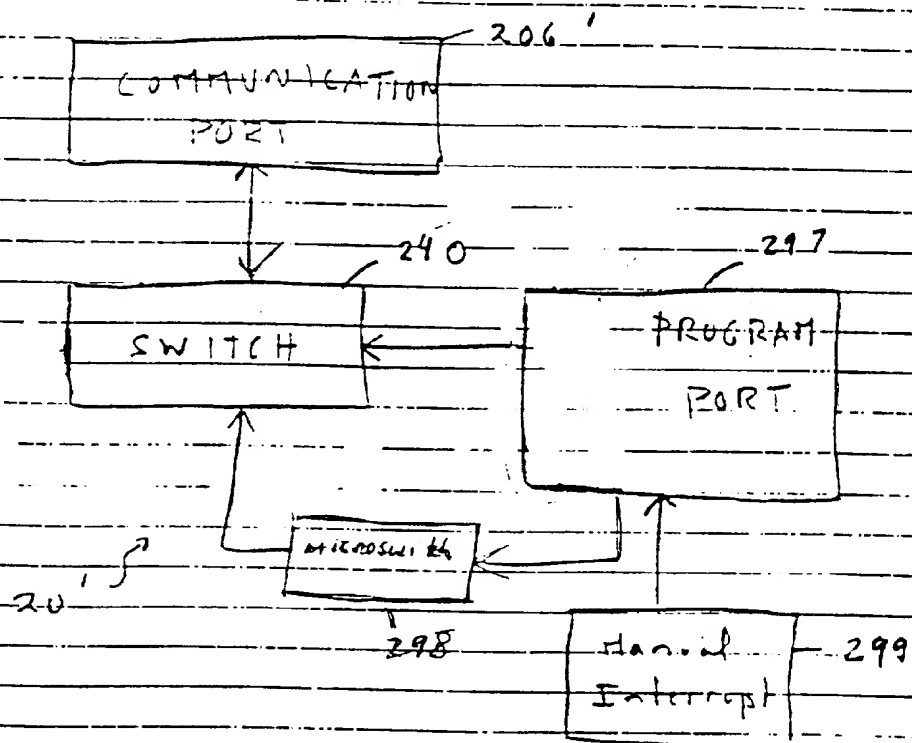 206'
COMMUNICATION
PORT
240
297
SWITCH
PROGRAM
PORT
MICROSWITCH
20'
298
Manual
Interrupt
299